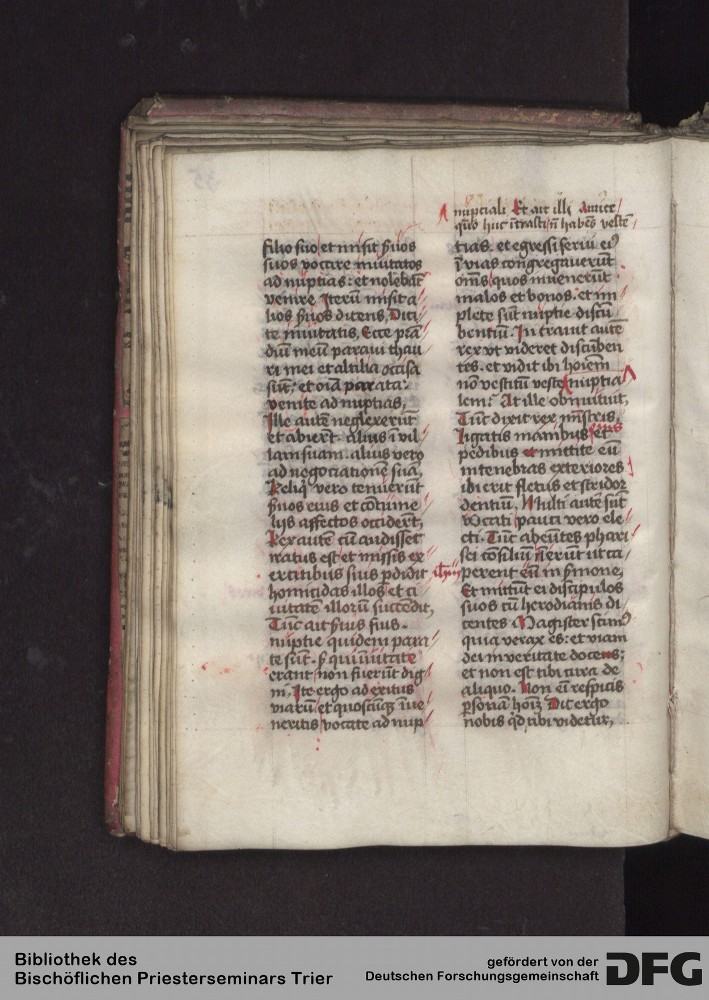 filio suo et misit s̃uos
suos vocare inuitatos
ad nuptias: et nolebãt
venire Iterũ misit a
lios s̃uos dicens, Dici
te inuitatis, Ecce prã
diũ meũ paraui thau
ri mei et altilia occisa
sũt: et oĩa parata.
venite ad nuptias,
Ille autẽ neglexerũt
et abierũt. alius ĩ vil
lam suam. alius vero
ad negociationẽ suã,
Reliq̃ vero tenuerũt
s̃uos eius et cõtume
lijs affectos occiderũt,
Rex autẽ cũ audisset
iratus est et missis ex
ercitibus suis p̃didit
homicidas illos et ci
uitatẽ illorũ succedit,
Tũc ait s̃uis suis.
nuptie quidem para
te sũt. s̃ qui ĩuitati
erant non fuerũt dig
ni. Ite ergo ad exitus
viarũ et quoscũqꝫ ĩue
neritis vocate ad nup
nupciali Et ait illi Amice
quõ huc ĩtrasti nõ habẽs vestẽ
tias. et egressi serui eiꝰ
ĩ vias congregauerũt
om̃s quos inuenerũt
malos et bonos. et im
plete sũt nuptie discũ
bentiũ. In trauit autẽ
rex vt videret discũben
tes. et vidit ibi hoĩem
nõ vestitũ veste nuptia
lem: At ille obmutuit,
Tũc dixit rex mĩstris,
ligatis manibus et
pedibus et mittite eũ
in tenebras exteriores
ibi erit fletus et stridor
dentiũ, Multi autẽ sũt
vocati pauci vero ele
cti. Tũc abeũtes phari
sei cõsiliũ inierũt ut ca
perent eũ in s̃mone,
Et mittũt ei discipulos
suos cũ herodianis di
centes Magister scimꝰ
quia verax es: et viam
dei in veritate doces;
et non est tibi cura de
aliquo. Non eĩ respicis
p̱sonã hoĩʒ Dic ergo
nobis qd̃ tibi videtur,
Bibliothek des
Bischöflichen Priesterseminars Trier
gefördert von der
Deutschen Forschungsgemeinschaft
DFG